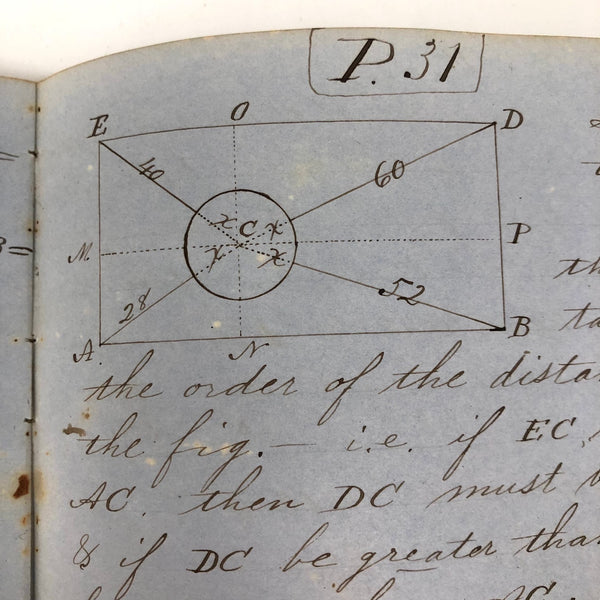 P. 31
E O D
40 60
x C x
M P
x x
28 52
A N B
th
ta
the order of the dista
the fig. — i.e. if EC
AC. then DC must
& if DC be greater than